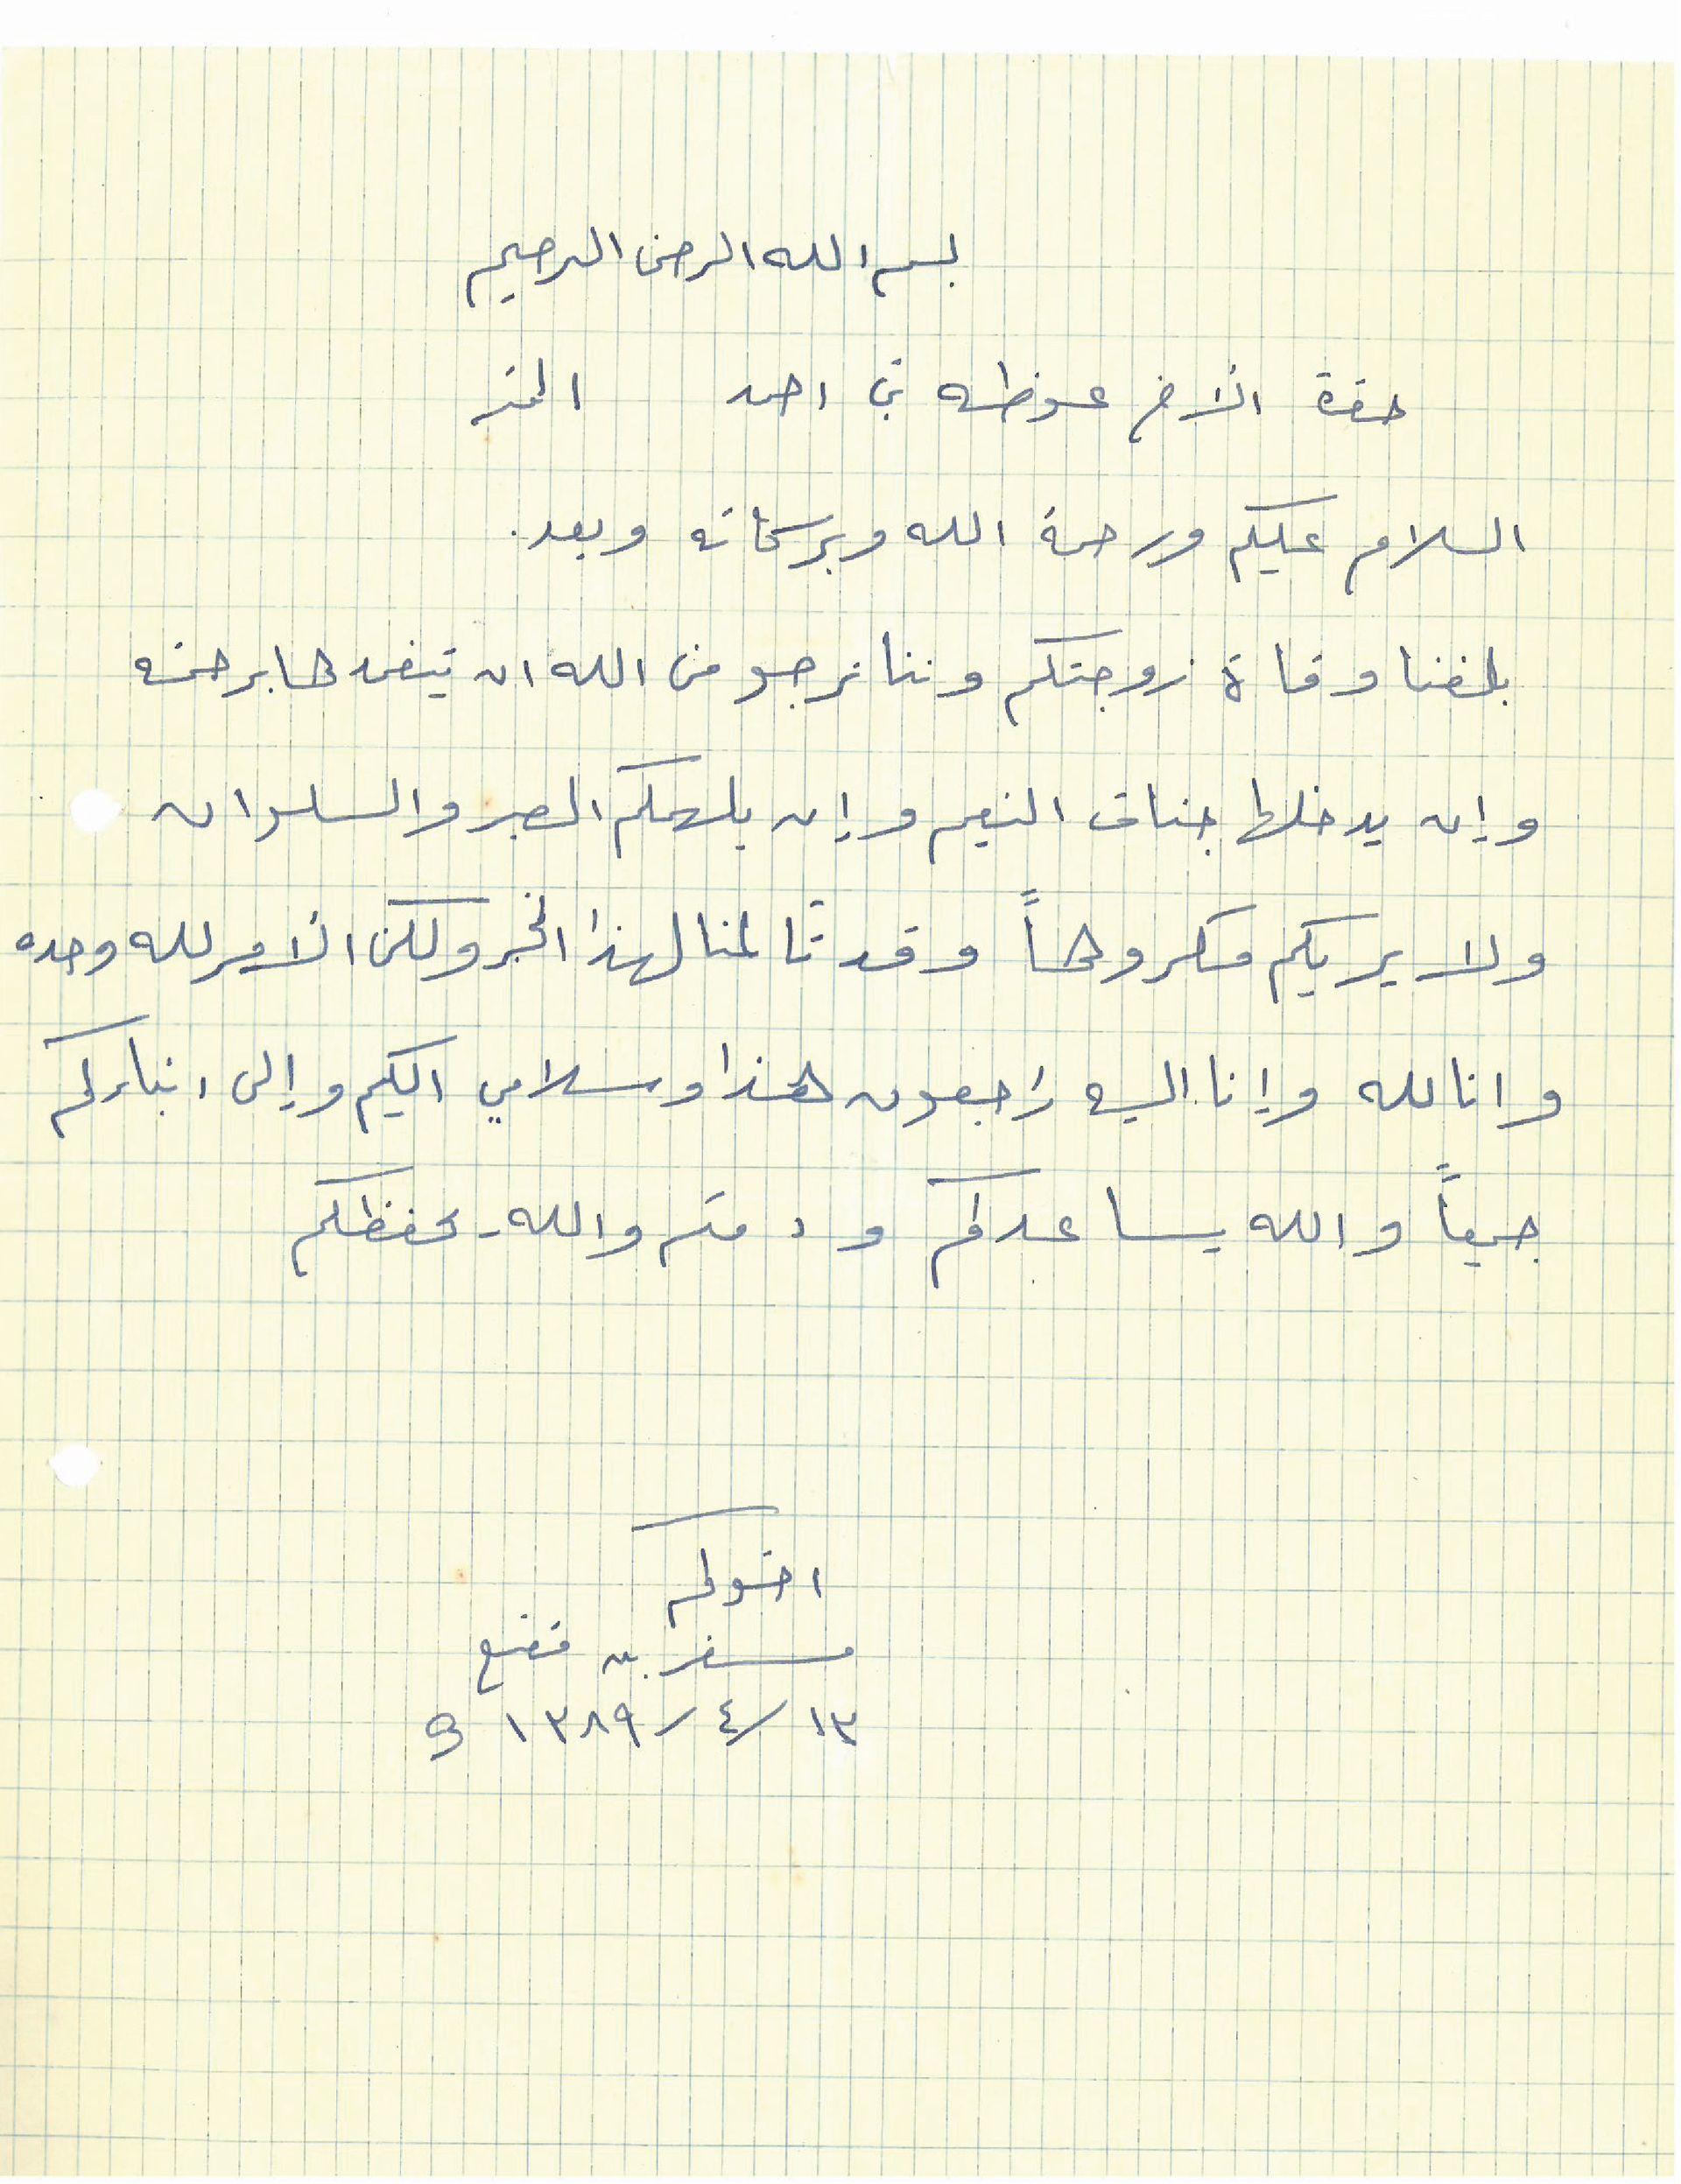 بسم الله الرحمن الرحيم
حضرة الأخ عوضه بن احمد المحترم
السلام عليكم ورحمة الله وبركاته وبعد.
بلغنا وفاة زوجتكم وننا نرجو من الله ان يتغمدها برحمته
وإن يدخلها جنات النعيم وإن يلهمكم الصبر والسلوان
ولا يريكم مكروهاً وقد تألمنا لهذا الخبر ولكن الأمر لله وحده
وانا لله وإنا اليه راجعون هذا وسلامي اليكم وإلى ابنائكم
جميعاً والله يساعدكم ودمتم والله يحفظكم
اخوكم
مسفر بن
١٣/٤/١٣٨٩ ه